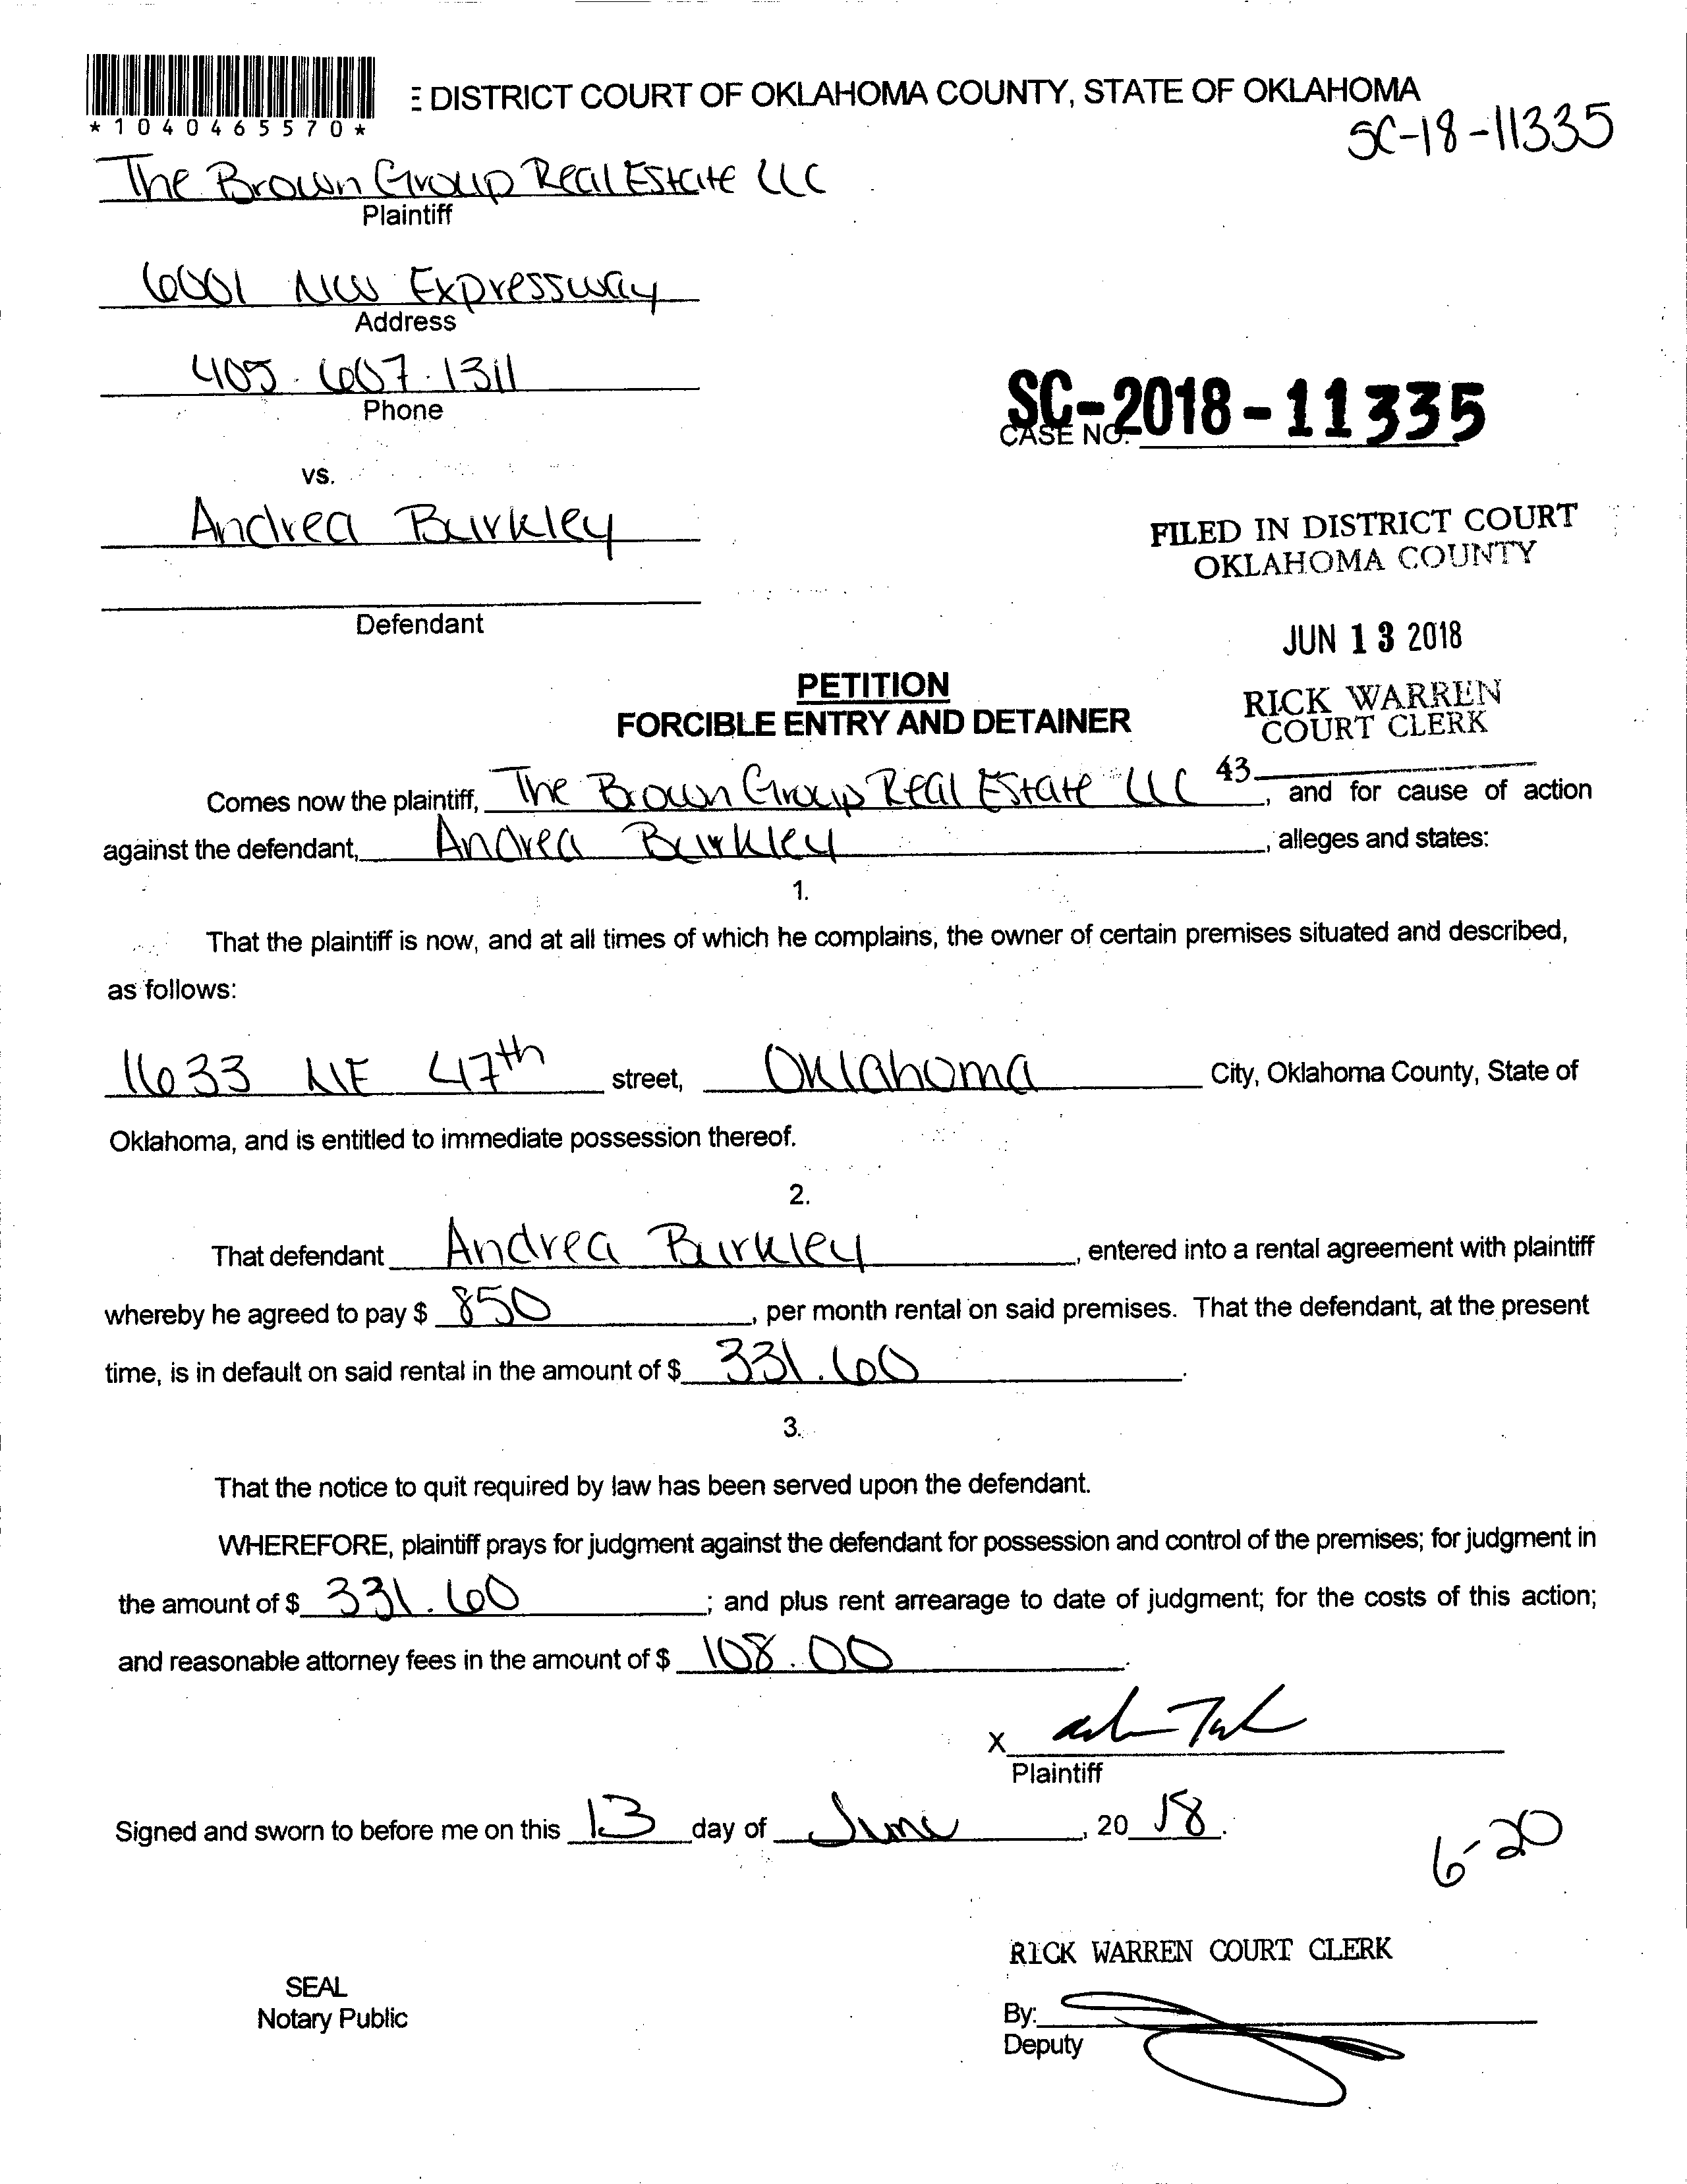 DISTRICT COURT OF OKLAHOMA COUNTY, STATE OF OKLAHOMA
*1040465570*
SC-18-11335
The Brown Group Real Estate LLC
Plaintiff
6001 NW Expressway
Address
405.607.1311
Phone
SC-2018-11335
CASE NO.
vs.
Andrea Burkley
FILED IN DISTRICT COURT
OKLAHOMA COUNTY
Defendant
JUN 13 2018
PETITION
FORCIBLE ENTRY AND DETAINER
RICK WARREN
COURT CLERK
43
Comes now the plaintiff, The Brown Group Real Estate LLC, and for cause of action
against the defendant, Andrea Burkley, alleges and states:
1.
That the plaintiff is now, and at all times of which he complains, the owner of certain premises situated and described,
as follows:
1633 NE 47th street, Oklahoma City, Oklahoma County, State of
Oklahoma, and is entitled to immediate possession thereof.
2.
That defendant Andrea Burkley, entered into a rental agreement with plaintiff
whereby he agreed to pay $ 850, per month rental on said premises. That the defendant, at the present
time, is in default on said rental in the amount of $ 331.60.
3.
That the notice to quit required by law has been served upon the defendant.
WHEREFORE, plaintiff prays for judgment against the defendant for possession and control of the premises; for judgment in
the amount of $ 331.60; and plus rent arrearage to date of judgment; for the costs of this action;
and reasonable attorney fees in the amount of $ 108.00.
X
Plaintiff
Signed and sworn to before me on this 13 day of June, 20 18.
6-20
RICK WARREN COURT CLERK
SEAL
Notary Public
By:
Deputy